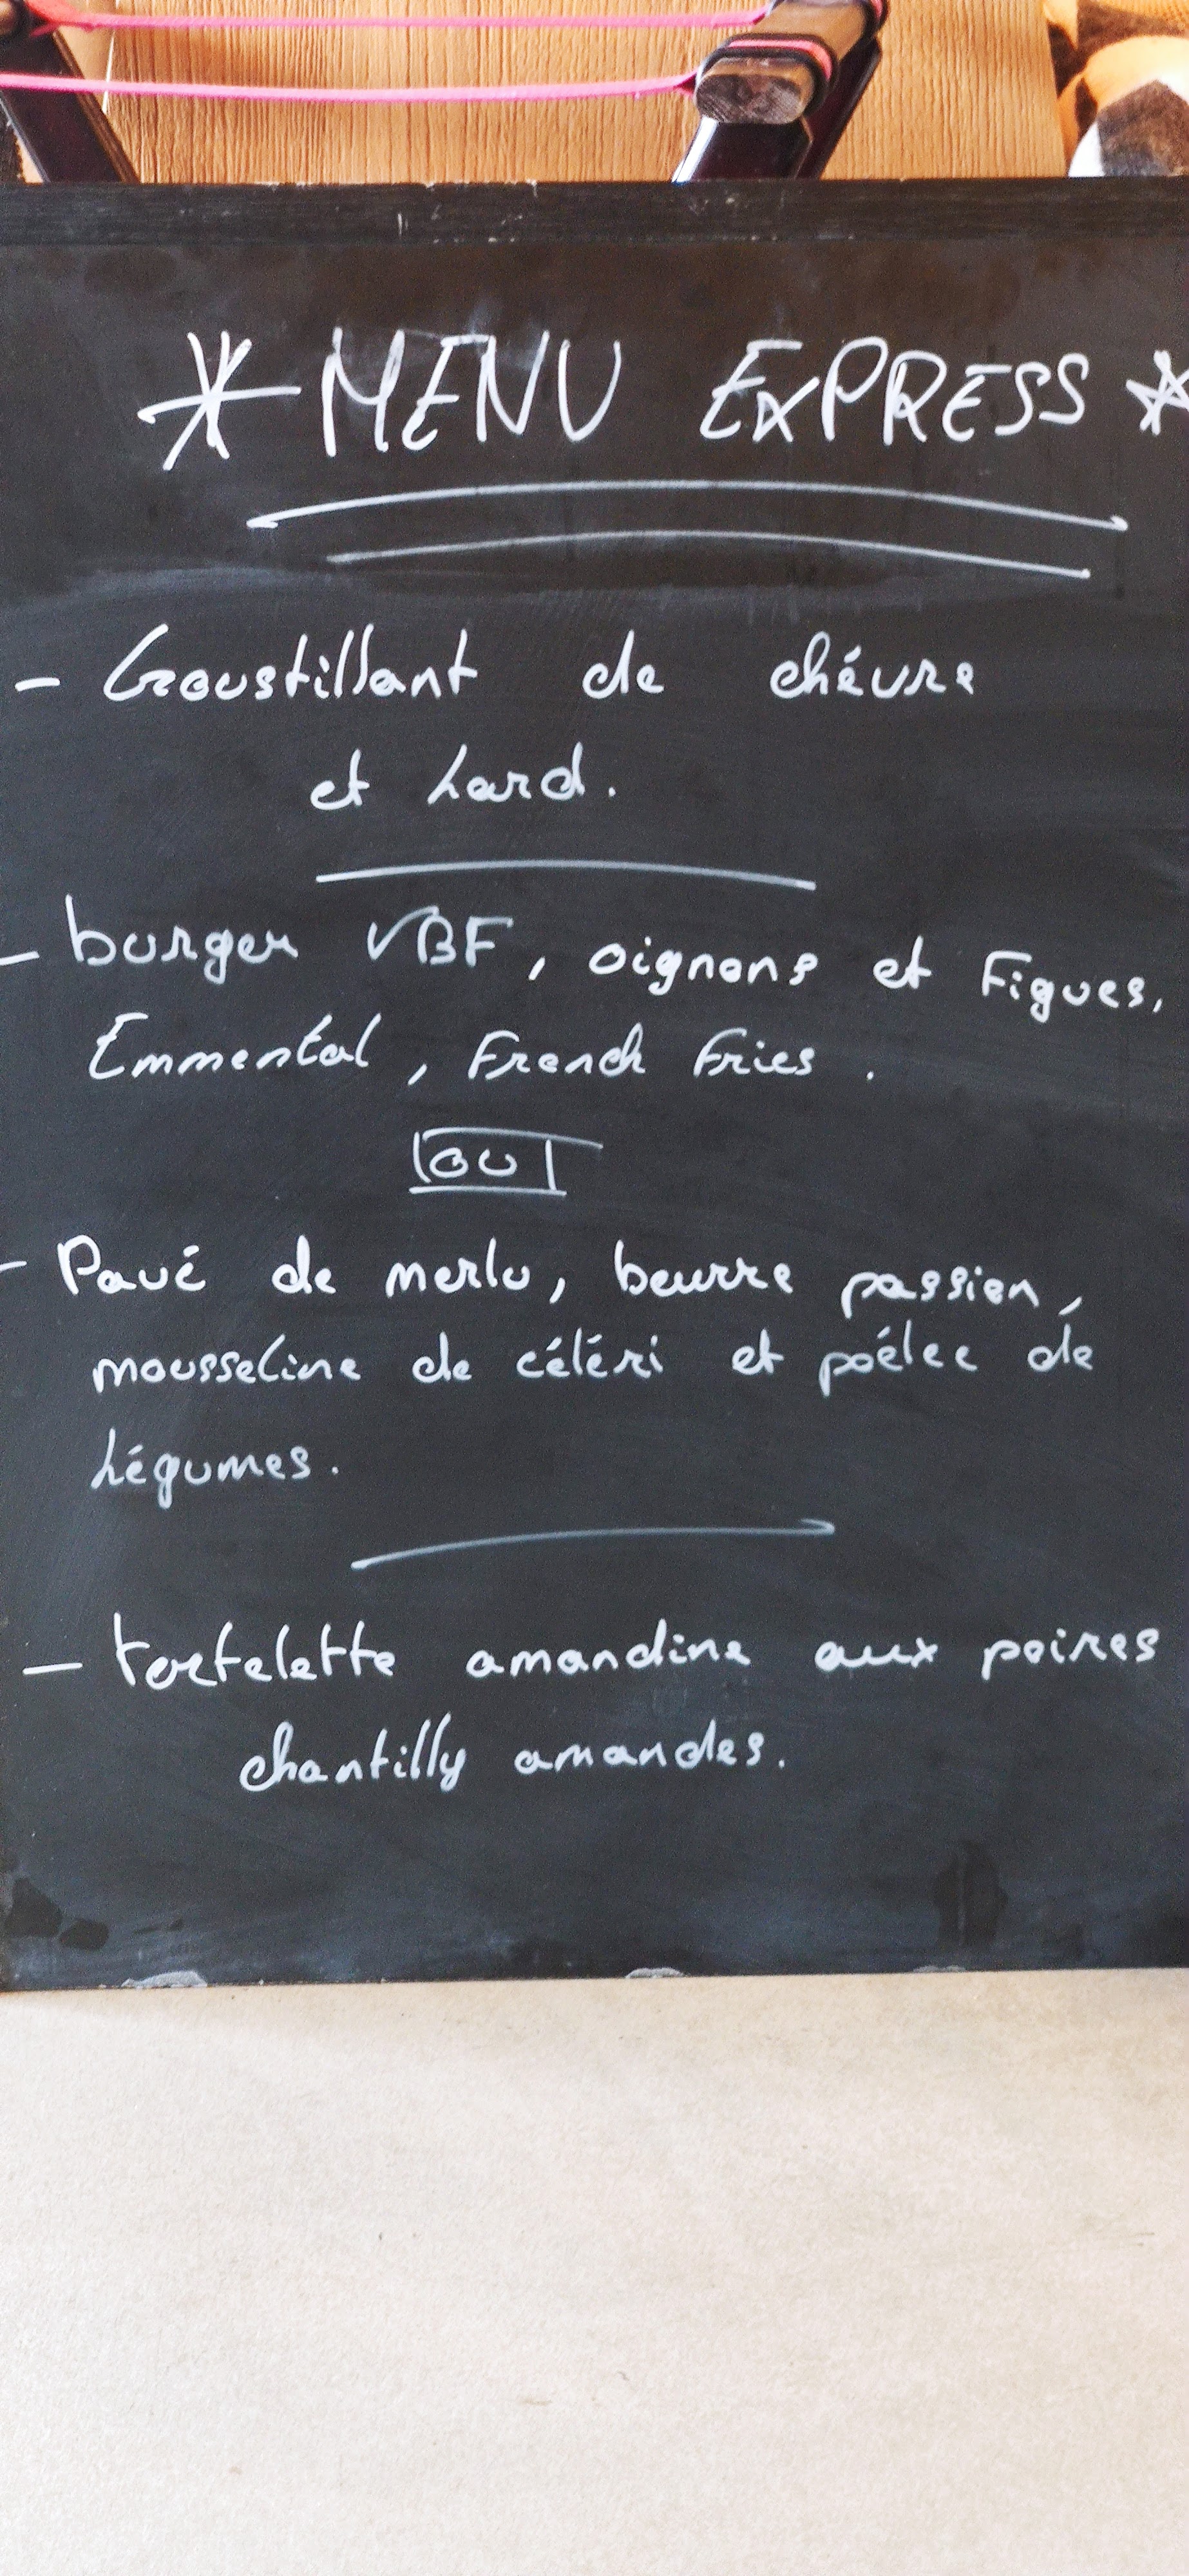 * MENU EXPRESS *
- Croustillant de chévre
et Lard.
- burger VBF, oignons et Figues,
Emmental, French Fries.
OU
- Pavé de merlu, beurre passion,
mousseline de céléri et poélée de
Légumes.
- tartelette amandine aux poires
chantilly amandes.